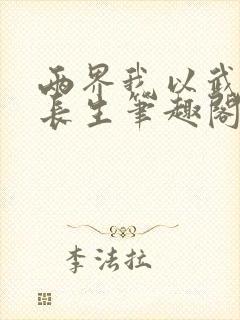 两界我以武
长生笔趣阁
李法拉